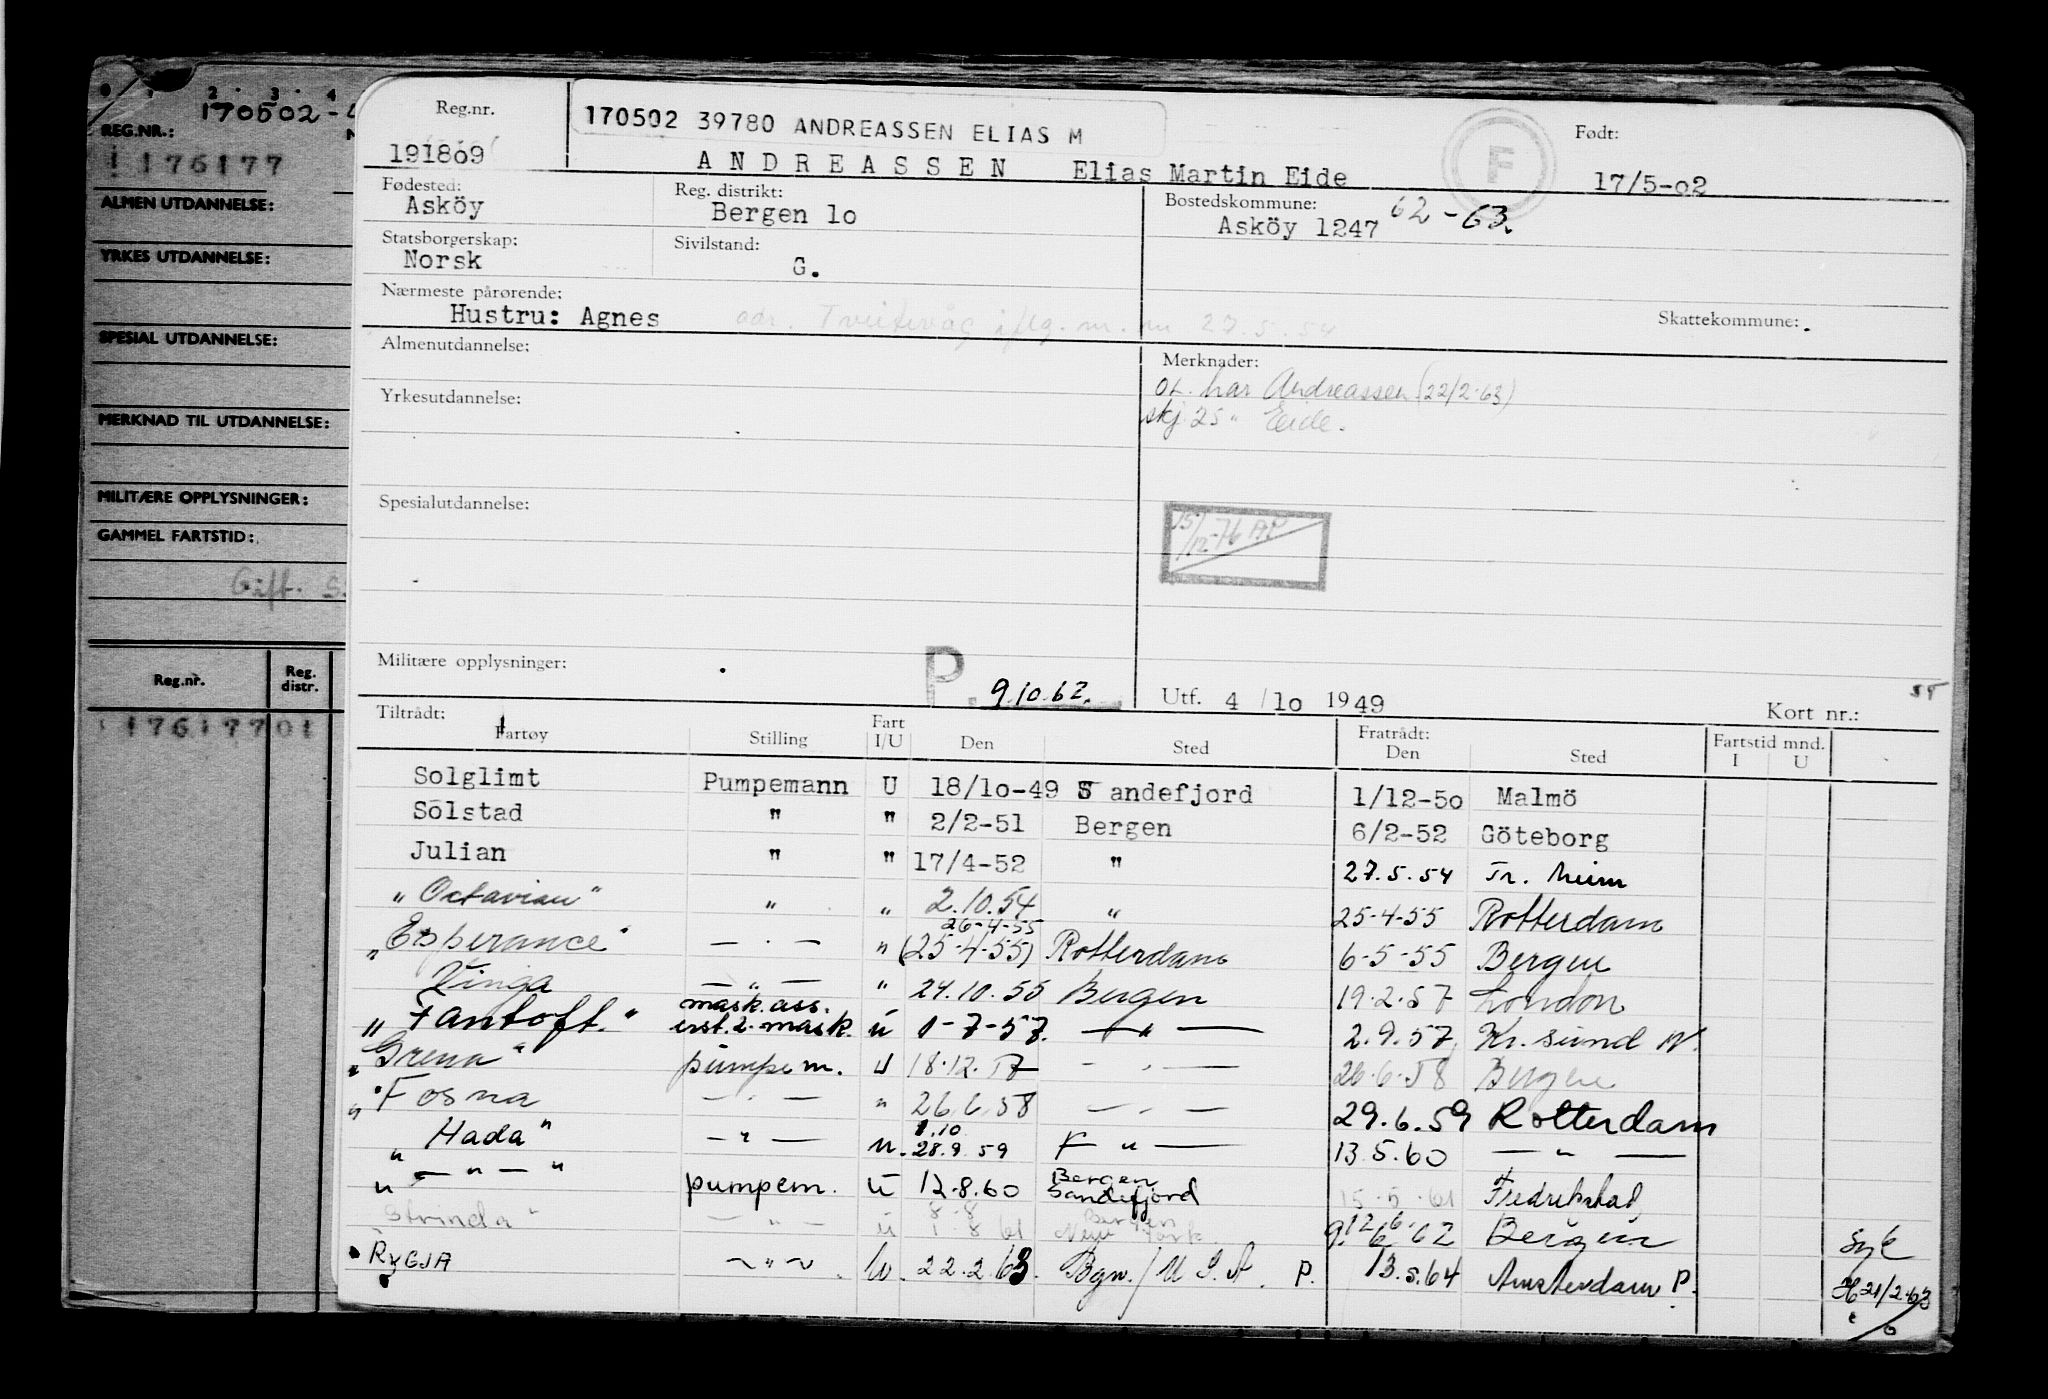 0 1 2 3 4
170502-
REG.NR.:
176177
ALMEN UTDANNELSE:
YRKES UTDANNELSE:
SPESIAL UTDANNELSE:
MERKNAD TIL UTDANNELSE:
MILITÆRE OPPLYSNINGER:
GAMMEL FARTSTID:
Gift.
Reg.nr. Reg. distr.
17617701
Reg.nr. 170502 39780 ANDREASSEN ELIAS M F Født:
191869 ANDREASSEN Elias Martin Eide 17/5-02
Fødested: Reg. distrikt: Bostedskommune:
Asköy Bergen 10 Asköy 1247 62-63
Statsborgerskap: Sivilstand:
Norsk G.
Nærmeste pårørende:
Hustru: Agnes adr. Tveitevåg iflg. m.m 27.5.54 Skattekommune:
Almenutdannelse: Merknader:
Ot. har Andreassen (22/2-63)
Yrkesutdannelse: skj. 25 " Eide.
Spesialutdannelse: 15/12-76
Militære opplysninger: P. 9.10.62. Utf. 4/10 1949 Kort nr.:
Tiltrådt: Fratrådt: Fartstid mnd.
Fartøy Stilling Fart I/U Den Sted Den Sted I U
Solglimt Pumpemann U 18/10-49 Sandefjord 1/12-50 Malmö
Solstad " " 2/2-51 Bergen 6/2-52 Göteborg
Julian " " 17/4-52 " 27.5.54 Tr. heim
"Octavian" " " 2.10.54 " 25-4-55 Rotterdam
26-4-55
"Esperance" — " — " (25-4-55) Rotterdam 6-5-55 Bergen
Vinga — " — " 24.10.55 Bergen 19.2.57 London
mask.ass.
"Fantoft." erst.2.mask. u 1-7-57. — " — 2.9.57. Kr. sund N.
"Grena" pumpem. u 18.12.57 — " — 26.6.58 Bergen
"Fosna — " — " 26.6.58 — " — 29.6.59 Rotterdam
1.10
"Hada" — " — u. 28.9.59 — " — 13.5.60 — " —
Bergen
" — " — " pumpem. u 12.8.60 Sandefjord 15-5-61 Fredrikstad
8-8 Bergen
Strinda" — " — u 1.8.61 New York. 6.62 Bergen Syk
RYGJA ~ " ~ u. 22.2.63. Bgn./U.S.A. P. 13.5.64 Amsterdam P. 21/2-63